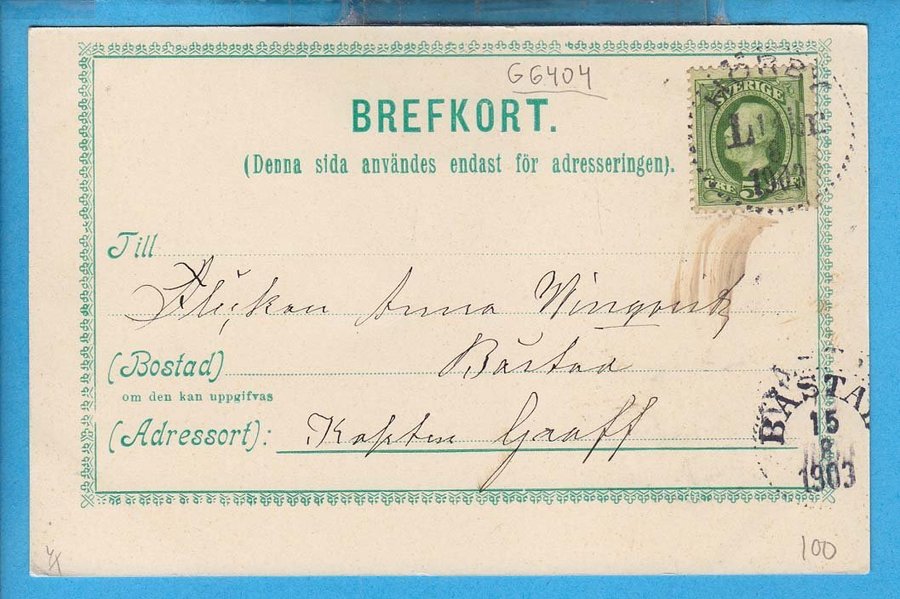 G6404
BREFKORT.
(Denna sida användes endast för adresseringen).
SVERIGE
5
1903
Till
Flickan Anna Wingqvist
(Bostad)
Båstad
om den kan uppgifvas
(Adressort):
Kapten Graaff
BÅSTAD
15
8
1903
100